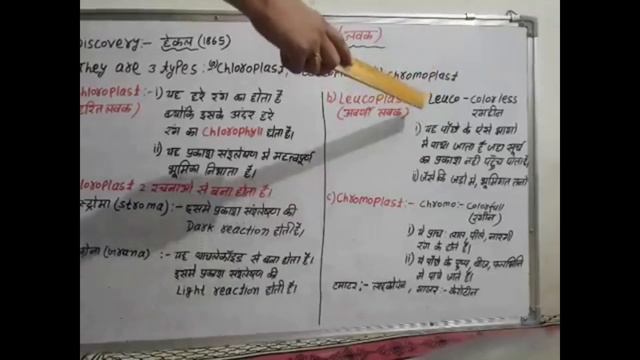 लवक)
Discovery:- हेकल (1865)
They are 3 types: a) Chloroplast, Chromoplast
Chloroplast:- i) यह हरे रंग का होता है
(हरित लवक) क्योंकि इसके अंदर हरे
रंग का Chlorophyll होता है।
ii) यह प्रकाश संश्लेषण में महत्वपूर्ण
भूमिका निभाता है।
Chloroplast 2 रचनाओं से बना होता है।
स्ट्रोमा (stroma):- इसमें प्रकाश संश्लेषण की
Dark reaction होती है,
ग्राना (Grana):- यह थायलेकॉइड से बना होता है।
इसमें प्रकाश संश्लेषण की
Light reaction होती है।
b) Leucoplast Leuco - Colorless
(अवर्णी लवक) रंगहीन
i) यह पौधों के ऐसे भागों
में पाया जाता है जहां सूर्य
का प्रकाश नहीं पहुँच पाता है।
ii) जैसे कि जड़ों में, भूमिगत तनों
c) Chromoplast:- Chromo:- Colorfull
(रंगीन)
i) ये प्रायः लाल, पीले, नारंगी
रंग के होते हैं।
ii) ये पौधों के पुष्प, बीज, फलभित्ति
में पाये जाते हैं।
टमाटर:- लाइकोपिन, गाजर:- कैरोटीन